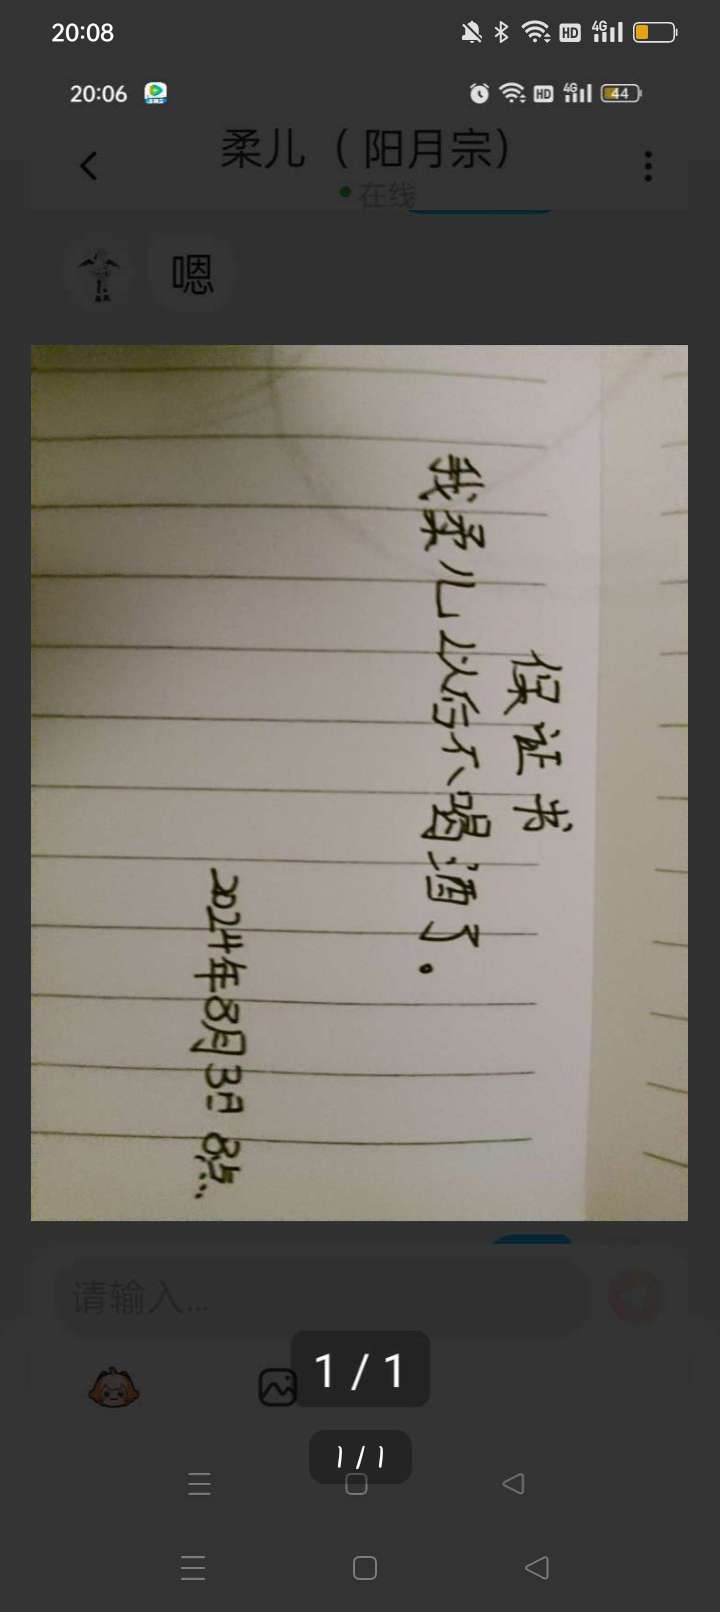 20:08
HD 4G
20:06
HD 4G 44
柔儿（ 阳月宗）
在线
嗯
保证书
我柔儿以后不喝酒了.
2024年8月3日 8点.
请输入...
1 / 1
1 / 1